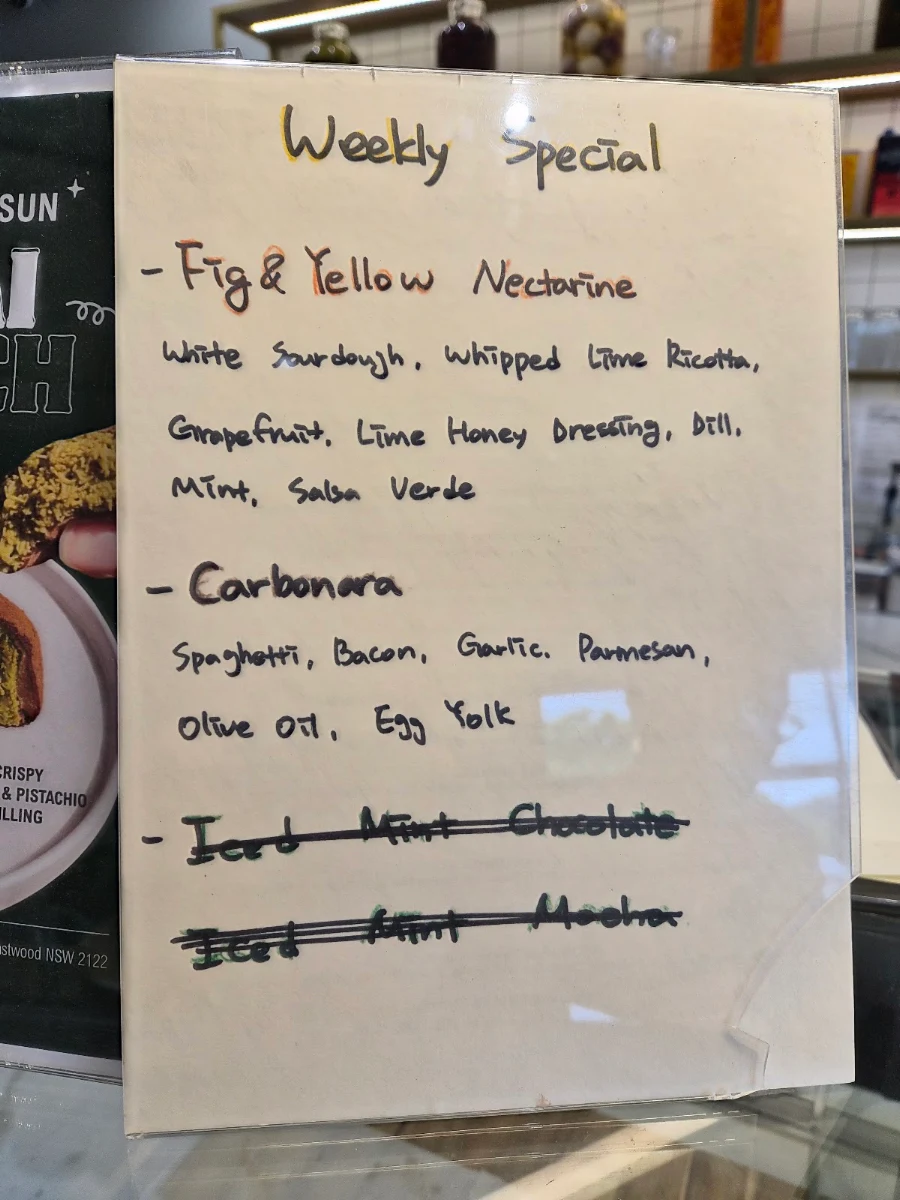 Weekly Special
- Fig & Yellow Nectarine
White Sourdough, Whipped Lime Ricotta,
Grapefruit, Lime Honey Dressing, Dill,
Mint, Salsa Verde
- Carbonara
Spaghetti, Bacon, Garlic, Parmesan,
Olive Oil, Egg Yolk
- Iced Mint Chocolate
Iced Mint Mocha
SUN
CRISPY
& PISTACHIO
NSW 2122